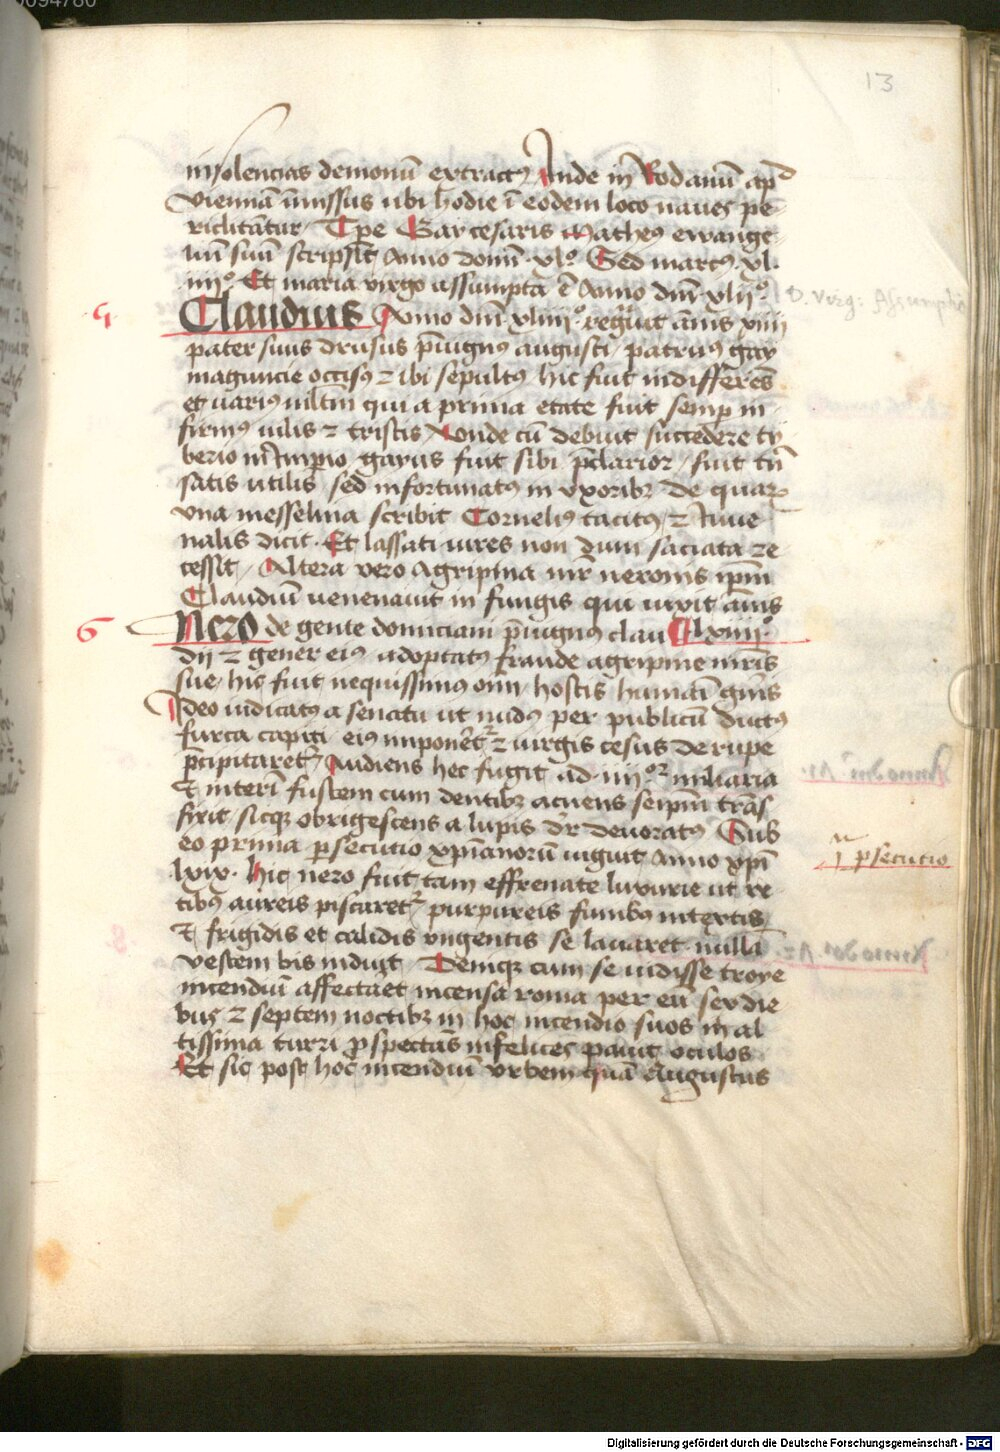 13
insolencias demonū extract⁹ Inde in Rodanū apd
viennā īmissus ubi hodie ī eodem loco naues pe-
riclitātur / Tpe Gay cesaris Matheus ewange-
liū suū scripsit Anno domī xlº Sed marc⁹ xl
iiiiº Et maria virgo assumpta ē Anno dnī xliiº
D. Virg: Assumptio
5
Claudius Anno dnī xliiiiº regnavit ānis xiiii
pater suus drusus p̄uignus augusti / patruus gay
maguncie occisus ⁊ ibi sepultus hic fuit indifferēs
et uarius qui a prima etate fuit semp in-
firmus uilis ⁊ tristis / Vnde cū debuit succedere ty
berio in Imperio gayus fuit sibi p̄clarior / fuit tn̄
satis utilis / sed infortunatus in vxoribꝫ de quaꝝ
vna messelina scribit Cornelius tacitus / ⁊ Iuue
nalis dicit Et lassati uires non dum saciata re
cessit / Altera vero Agripina mr̄ neronis ipm̄
Claudiū uenenauit in fungis qui uixit ānis
lxiiiiº
6
Nero de gente domiciani p̄uignus clau
dii ⁊ gener eius adoptatus fraude agripine mr̄is
sue / hic fuit nequissimus oīm / hostis humani gn̄is
Ideo iudicatus a senatu ut nudus per publicū ductus
furca capiti eius imponēt² ⁊ uirgis cesus de rupe
p̄cipitaret² Audiens hec fugit ad iiiiᵒʳ miliaria
Et interī fustem cum dentibꝫ acuens seipm̄ trās
fixit sicqꝫ obrigescens a lupis dr̄ deuoratus Sub
eo prima psecutio xp̄ianorū uiguit Anno xp̄i
jᵃ psecutio
lxix. hic nero fuit tam effrenate luxurie ut re
tibus aureis piscaret² purpureis funibus intextis
Et frigidis et calidis vngentis se lauaret nullā
vestem bis induit / Deniqꝫ cum se uidisse troye
incendiū affectaret incensa roma per eū sex die
bus ⁊ septem noctibꝫ in hoc incendio suos in al
tissima turri pspectās infelices pauit oculos
Et sic post hoc incendiū vrbem quā Augustus
Digitalisierung gefördert durch die Deutsche Forschungsgemeinschaft - DFG